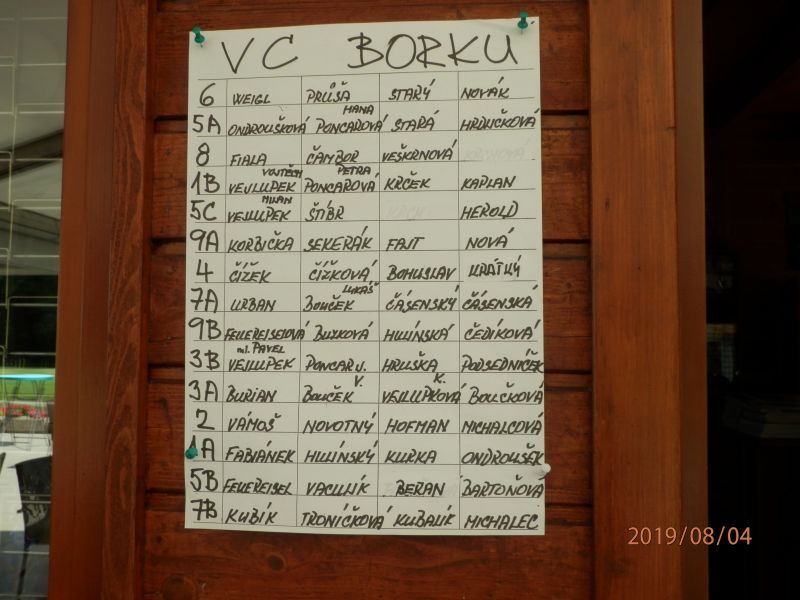 VC BORKU
6 WEIGL PRŮŠA STARÝ NOVÁK
5A ONDROUŠKOVÁ HANA PONCAROVÁ STARÁ HRDLIČKOVÁ
8 FIALA ČAMBOR VEŠKRNOVÁ
1B VOJTĚCH VEJLUPEK PETRA PONCAROVÁ KRČEK KAPLAN
5C MILAN VEJLUPEK ŠTÍBR HEROLD
9A KORBIČKA SEKERÁK FAJT NOVÁ
4 ČÍŽEK ČÍŽKOVÁ BOHUSLAV KRÁTKÝ
7A URBAN LUKÁŠ BOUČEK ČÁSENSKÝ ČÁSENSKÁ
9B FEUEREISELOVÁ BUZKOVÁ HULÍNSKÁ ČEDÍKOVÁ
3B ml. PAVEL VEJLUPEK PONCAR J. HRUŠKA PODSEDNÍČEK
3A BURIAN V. BOUČEK K. VEJLUPKOVÁ BOUČKOVÁ
2 VÁMOŠ NOVOTNÝ HOFMAN MICHALCOVÁ
1A FABIÁNEK HULÍNSKÝ KURKA ONDROUŠEK
5B FEUEREISEL VACULÍK BERAN BARTOŇOVÁ
7B KUBÍK TRONÍČKOVÁ KUBALÍK MICHALEC
2019/08/04